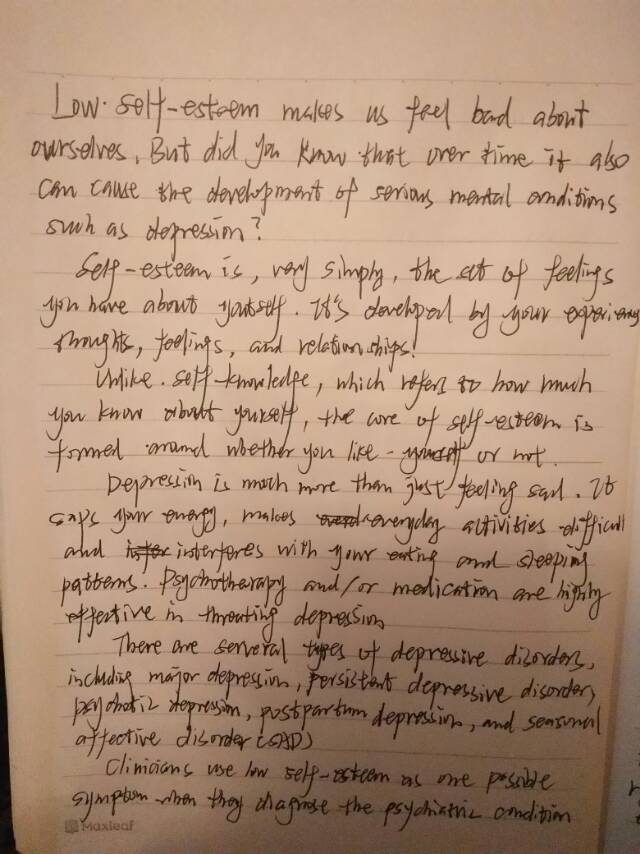 Low self-esteem makes us feel bad about
ourselves, But did you know that over time it also
can cause the development of serious mental conditions
such as depression?
Self-esteem is, very simply, the set of feelings
you have about yourself. It's developed by your experiences
thoughts, feelings, and relationships.
Unlike self-knowledge, which refers to how much
you know about yourself, the core of self-esteem is
formed around whether you like yourself or not.
Depression is much more than just feeling sad. It
saps your energy, makes everyday activities difficult
and interferes with your eating and sleeping
patterns. Psychotherapy and/or medication are highly
effective in threating depression
There are serveral types of depressive disorders,
including major depression, persistent depressive disorder,
psychotic depression, postpartum depression, and seasonal
affective disorder (SAD)
Clinicians use low self-esteem as one possible
symptom when they diagnose the psychiatric condition
Maxleaf